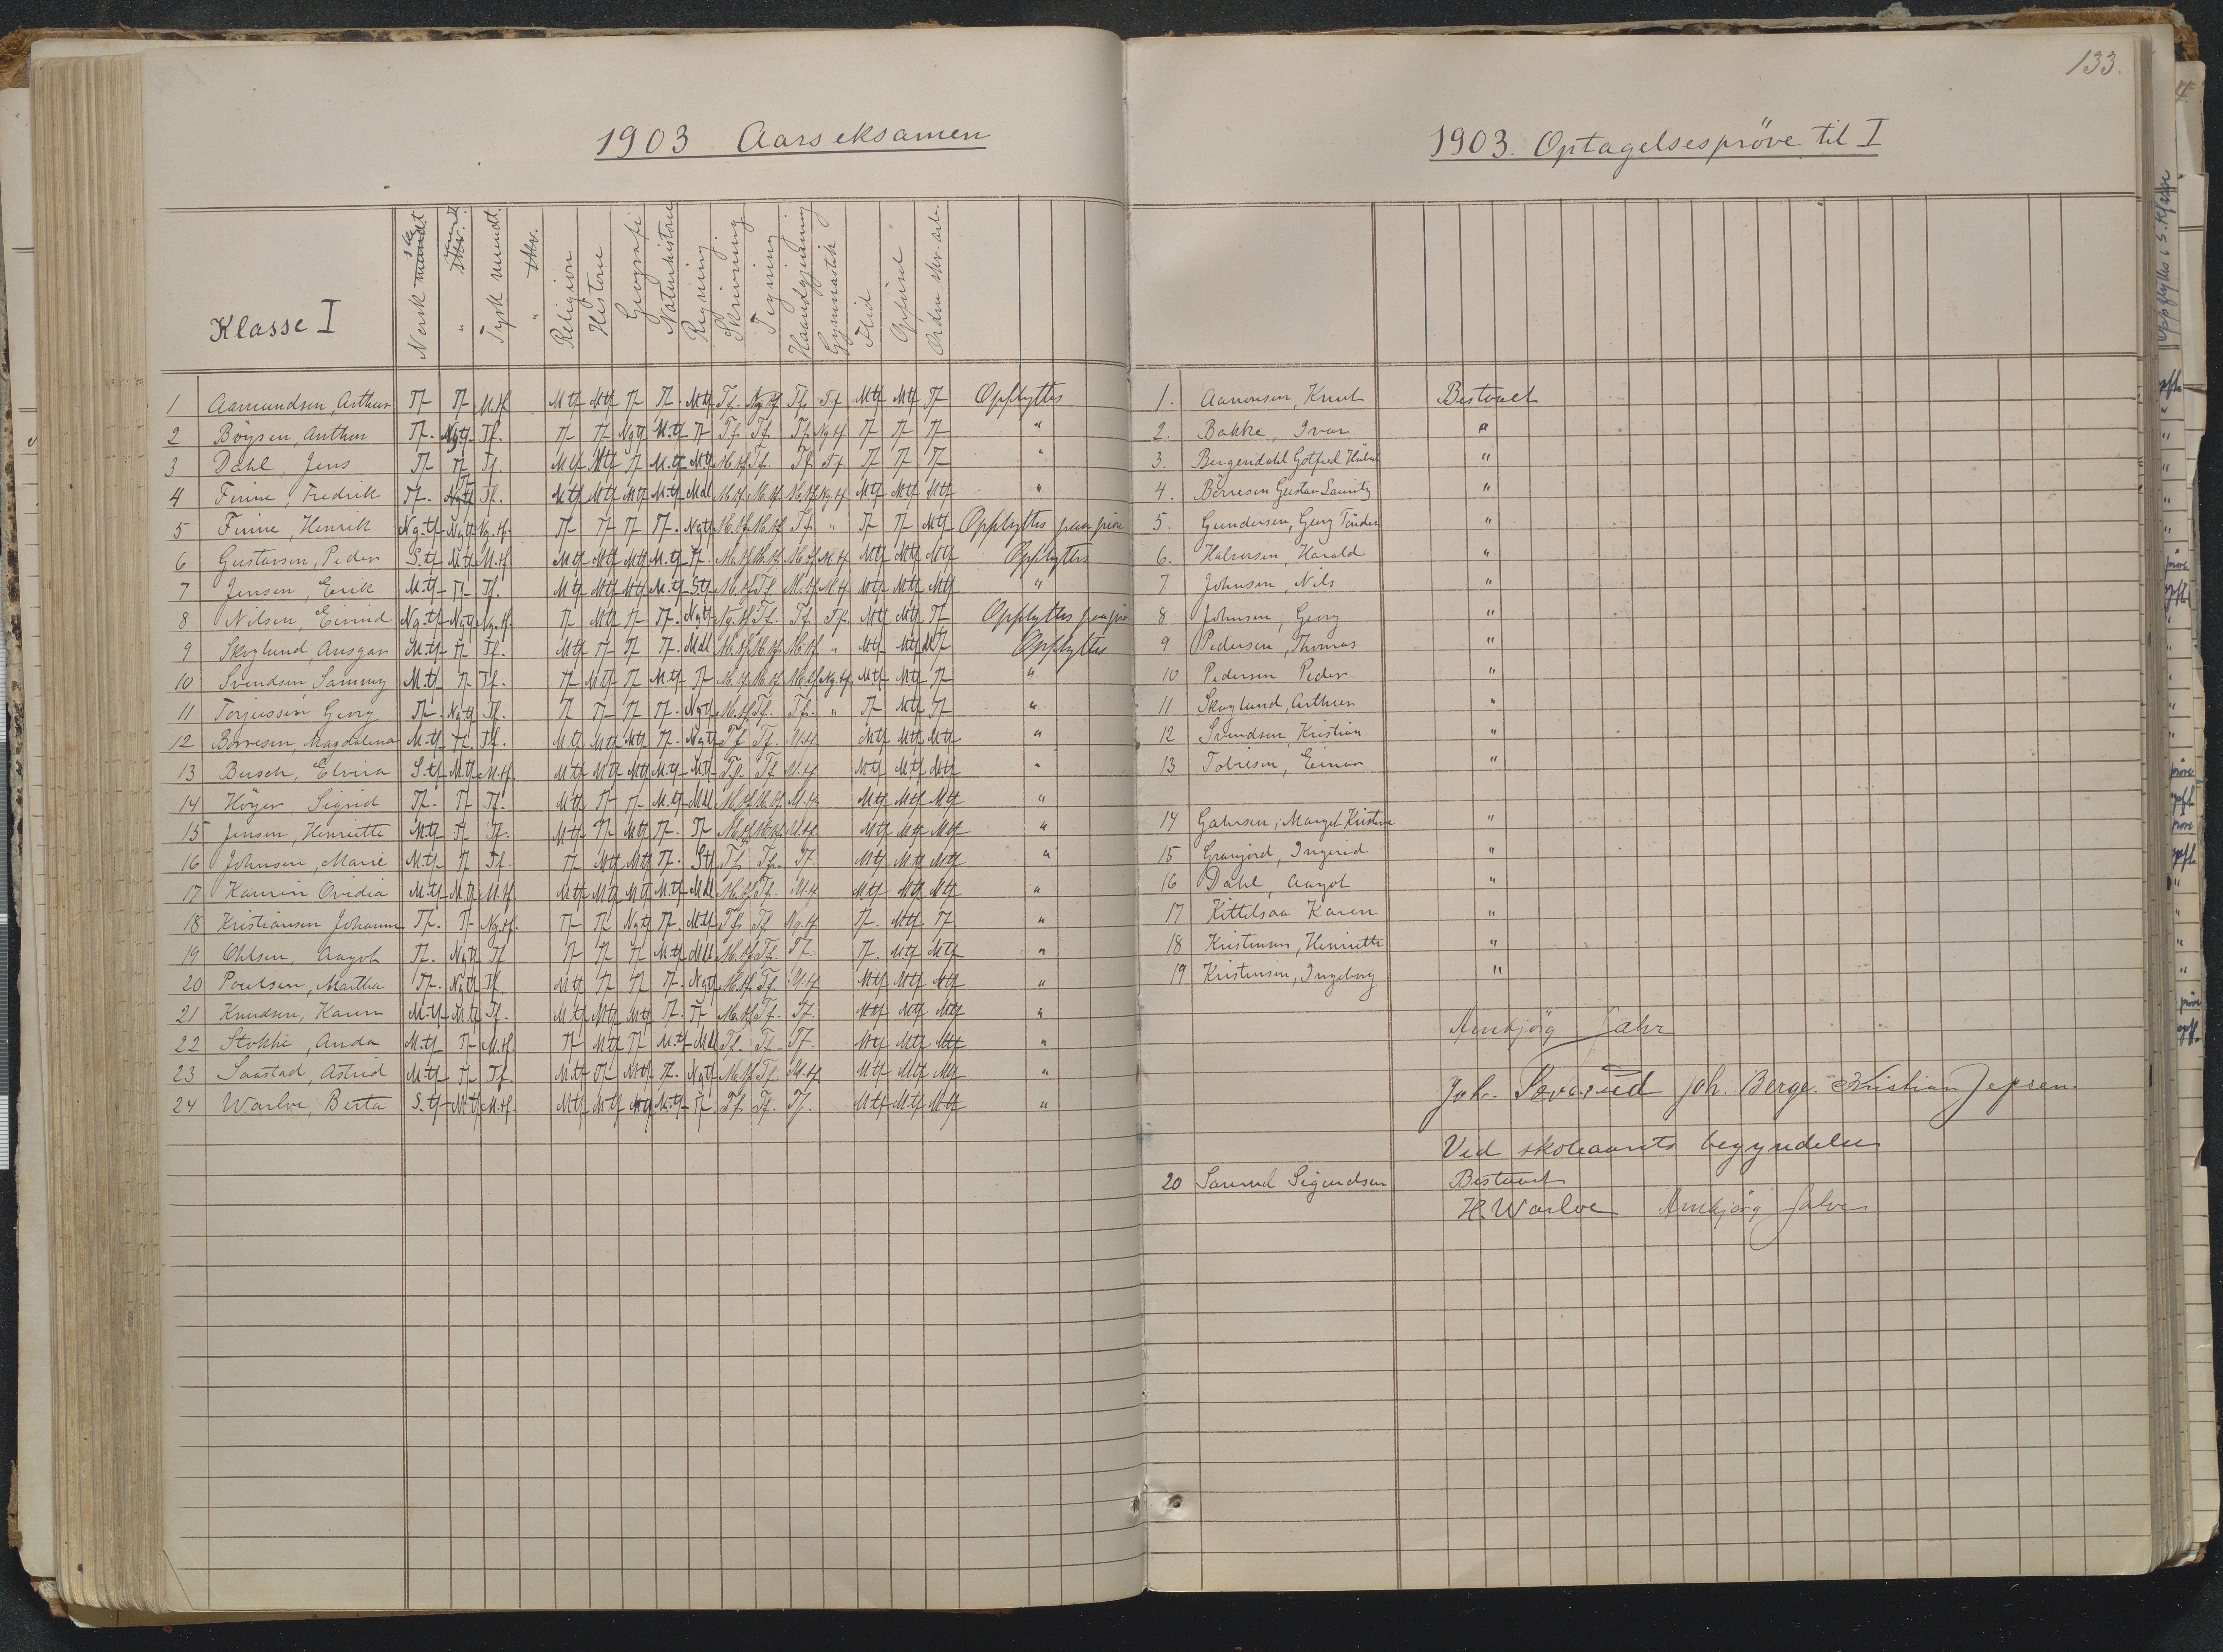 1903 Aarseksamen
Klasse I
Norsk mundt
" skr.
Tysk mundt.
" skr.
Religion
Historie
Geografi
Naturhistorie
Regning
Skrivning
Tegning
Haandgjerning
Gymnastik
Flid
Opførsel
Orden skr. arb.
1 Aamundsen, Arthur Tf Tf M.tf Mtf Mtf Tf Tf. Mtf Tf. Ng.tf Tf. Tf Mtf Mtf Tf Opflyttes
2 Böysen, Anthon Tf. Ngtf Tf. Tf Tf Ngtf M.tf Tf Tf. Tf. Tf. Ng.tf Tf Tf Tf "
3 Dahl, Jens Tf Tf Tf. Mtf Mtf Tf M.tf M.tf M.tf Tf. Tf. Tf Tf Tf Tf "
4 Finne, Fredrik Tf. Tf Tf. M.tf Mtf Mtf M.tf Mdl M.tf M.tf M.tf Ng.tf Mtf Mtf Mtf "
5 Finne, Henrik Ng.tf Ngtf Ng.tf. Tf Tf Tf Tf. Ngtf M.tf M.tf Tf. " Tf Tf Mtf Opflyttes paa prøve
6 Gustavsen, Peder S.tf Mtf M.tf Mtf Mtf Mtf M.tf Tf. M.tf M.tf M.tf M.tf Mtf Mtf Mtf Opflyttes
7 Jensen, Erik M.tf Tf Tf. Mtf Mtf Mtf M.tf Stf M.tf Tf. M.tf M.tf Mtf Mtf Mtf "
8 Nilsen, Eivind Ng.tf Ngtf Ng.tf. Tf Mtf Tf Tf. Ngtf Ng.tf Tf. Tf. Tf. Mtf Mtf Tf Opflyttes paa prøve
9 Skoglund, Ansgar M.tf Tf Tf. Mtf Tf Tf Tf. Mdl M.tf M.tf M.tf " Mtf Mtf Tf Opflyttes
10 Svendsen, Sammy M.tf Tf Tf. Tf Mtf Tf M.tf Tf M.tf M.tf M.tf Ng.tf Mtf Mtf Tf "
11 Torjussen Georg Tf. Ngtf Tf. Tf Tf Tf Tf. Ngtf M.tf Tf. Tf. " Tf Mtf Tf "
12 Børresen, Magdalena M.tf Tf. Tf. Mtf Mtf Mtf Tf. Ngtf Tf Tf. M.tf Mtf Mtf Mtf "
13 Busch, Elvira S.tf M.tf M.tf. Mtf Mtf Mtf M.tf Mtf Tf. Tf M.tf Mtf Mtf Mtf "
14 Höyer Sigrid Tf. Tf Tf. Mtf Tf Tf M.tf Mdl M.tf M.tf M.tf Mtf Mtf Mtf "
15 Jensen, Henriette M.tf Tf Tf. Mtf Tf Mtf Tf. Tf M.tf M.tf M.tf Mtf Mtf Mtf "
16 Johnsen, Marie M.tf Tf Tf. Tf Mtf Mtf Tf. Stf Tf. Tf. Tf. Mtf Mtf Mtf "
17 Kaurin Ovidia M.tf M.tf M.tf Mtf Mtf Mtf M.tf Mdl M.tf Tf. M.tf Mtf Mtf Mtf "
18 Kristiansen Johanne Tf. Tf Ng.tf. Tf Tf Ngtf Tf. Mtf Tf. Tf Ng.tf Tf. Mtf Tf "
19 Ohlsen, Aagot Tf. Ngtf Tf Tf Tf Tf M.tf Mdl M.tf Tf. Tf. Tf. Mtf Mtf "
20 Poulsen, Martha Tf. Ngtf Tf. Mtf Tf Tf Tf. Ngtf M.tf Tf. M.tf Mtf Mtf Mtf "
21 Knudsen, Karen M.tf Mtf Tf. Mtf Mtf Mtf Tf. Tf M.tf Tf. Tf. Mtf Mtf Mtf "
22 Stokke, Anda M.tf Tf M.tf. Tf Mtf Tf M.tf Mdl Tf. Tf. Tf. Mtf Mtf Mtf "
23 Saastad, Astrid M.tf Tf Tf. M.tf Tf Mtf Tf. Ngtf M.tf Tf. M.tf Mtf Mtf Mtf "
24 Warloe, Berta S.tf Mtf M.tf. Mtf Mtf Mtf M.tf Tf. Tf. Tf. Tf. Mtf Mtf Mtf "
133.
1903. Optagelsespröve til I
1. Aanonsen, Knut Bestaaet
2. Bakke, Ivar "
3. Bergendahl Gotfred "
4. Börresen Gustav Lauritz "
5. Gundersen, Georg "
6. Halvorsen, Harald "
7 Johnsen, Nils "
8 Johnsen, Georg "
9 Pedersen, Thomas "
10 Pedersen Peder "
11 Skoglund, Arthur "
12 Svendsen, Kristian "
13 Tobiesen, Einar "
14 Gahrsen, Margit Kristine "
15 Granjord, Ingerid "
16 Dahl, Aagot "
17 Kittelsaa Karen "
18 Kristensen, Henriette "
19 Kristensen, Ingeborg "
Annbjörg Jahr
Joh. Joh. Berge. Kristian Jepsen.
Ved skoleaarets begyndelse
20 Sigurdsen Bestaaet
H. Warloe Annbjörg
opflyttes i 3. Klasse